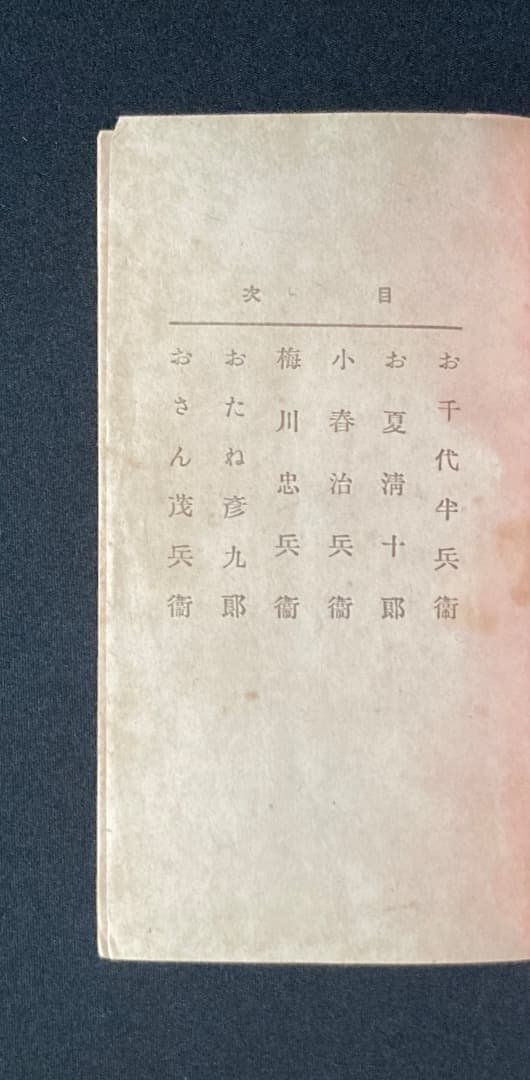 目次
お千代半兵衞
お夏淸十郎
小春治兵衞
梅川忠兵衞
おたね彦九郎
おさん茂兵衞